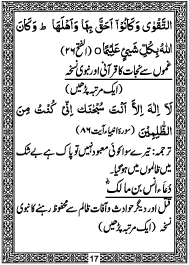 التَّقْوٰى وَكَانُوْٓا اَحَقَّ بِهَا وَاَهْلَهَا ط وَكَانَ
اللّٰهُ بِكُلِّ شَيْءٍ عَلِيْمًا ۝ (الفتح ۲۶)
غموں سے نجات کا قرآنی اور نبوی نسخہ
(ایک مرتبہ پڑھیں)
لَآ اِلٰهَ اِلَّآ اَنْتَ سُبْحٰنَكَ اِنِّىْ كُنْتُ مِنَ
الظّٰلِمِيْنَ (سورۃ انبیاء، آیت ۸۶)
ترجمہ: تیرے سوا کوئی معبود نہیں تو پاک ہے بے شک
میں ظالموں میں ہو گیا۔
دُعاء انس بن مالکؓ
قتل اور دیگر حوادث و آفات ظالم سے محفوظ رہنے کا نبوی
نسخہ (ایک مرتبہ پڑھیں)
17